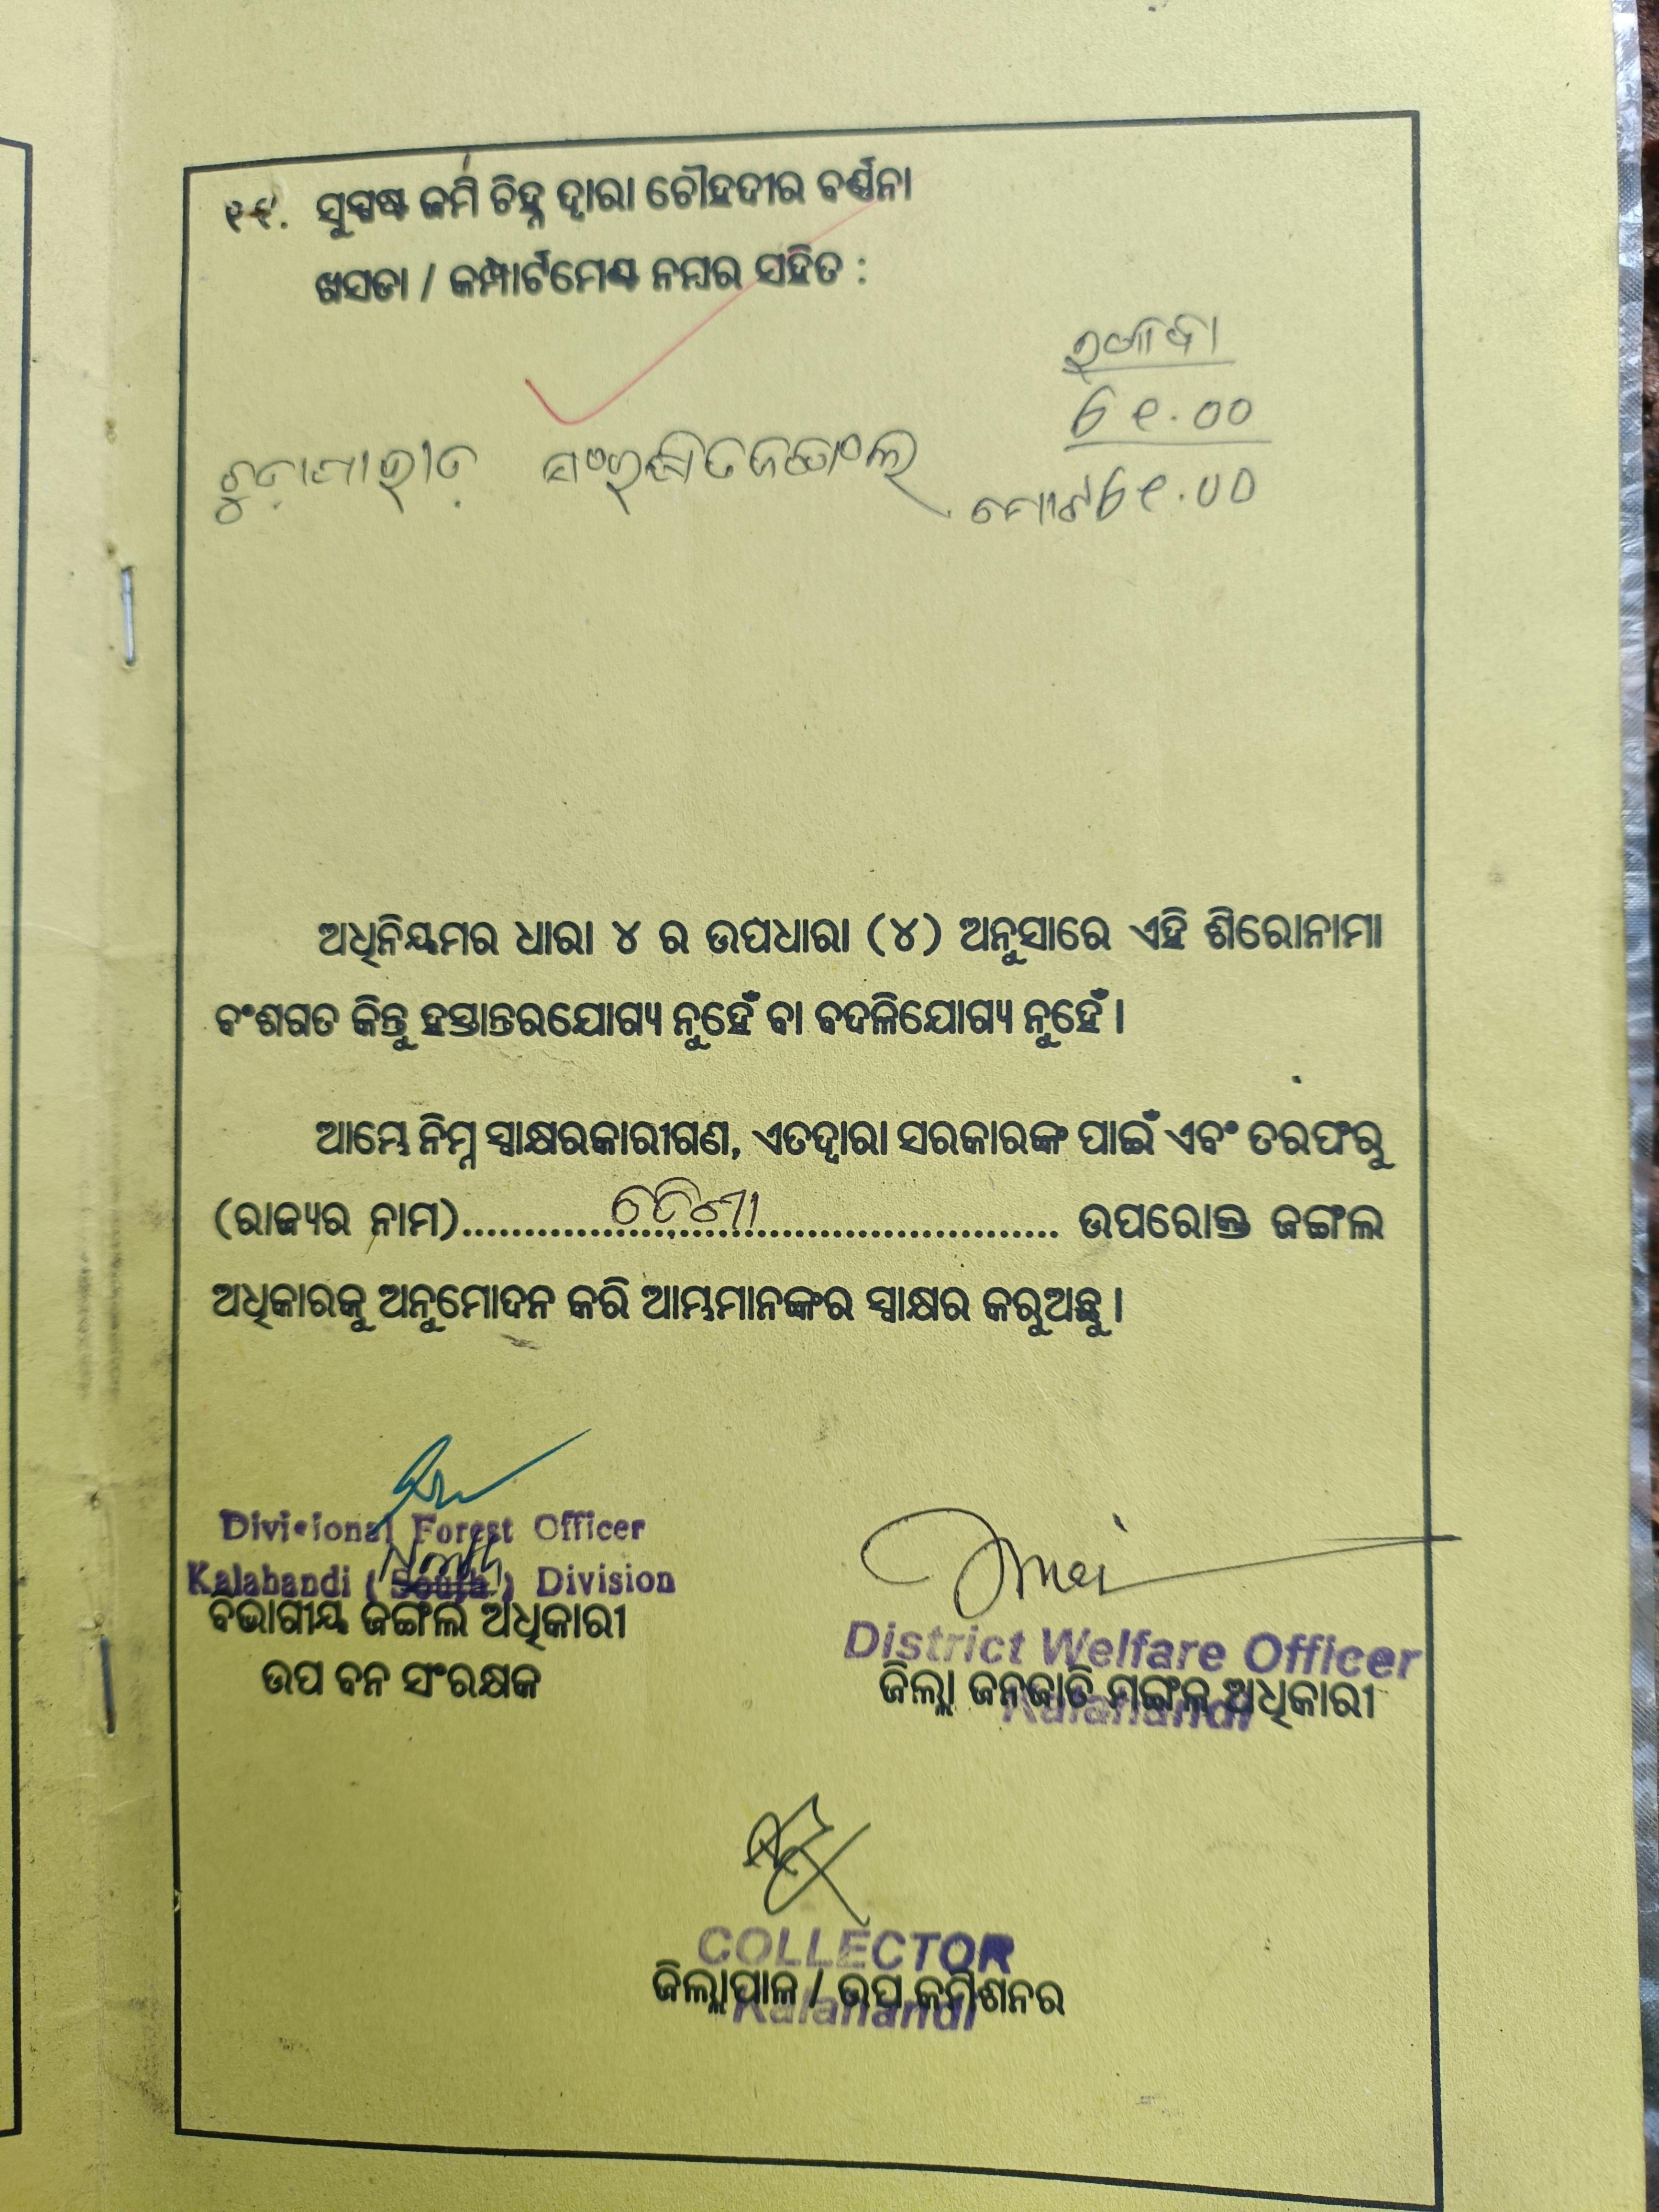 ସୁସ୍ପଷ୍ଟ ଜମି ଚିହ୍ନ ଦ୍ୱାରା ଚୌହଦୀର ବର୍ଣ୍ଣନା
ଖସଡା / କମ୍ପାର୍ଟମେଣ୍ଟ ନମ୍ବର ସହିତ :
୬୧.୦୦
ମୋଟ ୬୧.୦୦
ଅଧିନିୟମର ଧାରା ୪ ର ଉପଧାରା (୪) ଅନୁସାରେ ଏହି ଶିରୋନାମା
ବଂଶଗତ କିନ୍ତୁ ହସ୍ତାନ୍ତରଯୋଗ୍ୟ ନୁହେଁ ବା ବଦଳିଯୋଗ୍ୟ ନୁହେଁ ।
ଆମ୍ଭେ ନିମ୍ନ ସ୍ୱାକ୍ଷରକାରୀଗଣ, ଏତଦ୍ୱାରା ସରକାରଙ୍କ ପାଇଁ ଏବଂ ତରଫରୁ
(ରାଜ୍ୟର ନାମ)................................................ ଉପରୋକ୍ତ ଜଙ୍ଗଲ
ଅଧିକାରକୁ ଅନୁମୋଦନ କରି ଆମ୍ଭମାନଙ୍କର ସ୍ୱାକ୍ଷର କରୁଅଛୁ ।
Divisional Forest Officer
Kalahandi (South) North Division
ବିଭାଗୀୟ ଜଙ୍ଗଲ ଅଧିକାରୀ
ଉପ ବନ ସଂରକ୍ଷକ
District Welfare Officer
ଜିଲ୍ଲା ଜନଜାତି ମଙ୍ଗଳ ଅଧିକାରୀ
Kalahandi
COLLECTOR
ଜିଲ୍ଲାପାଳ / ଉପ କମିଶନର
Kalahandi